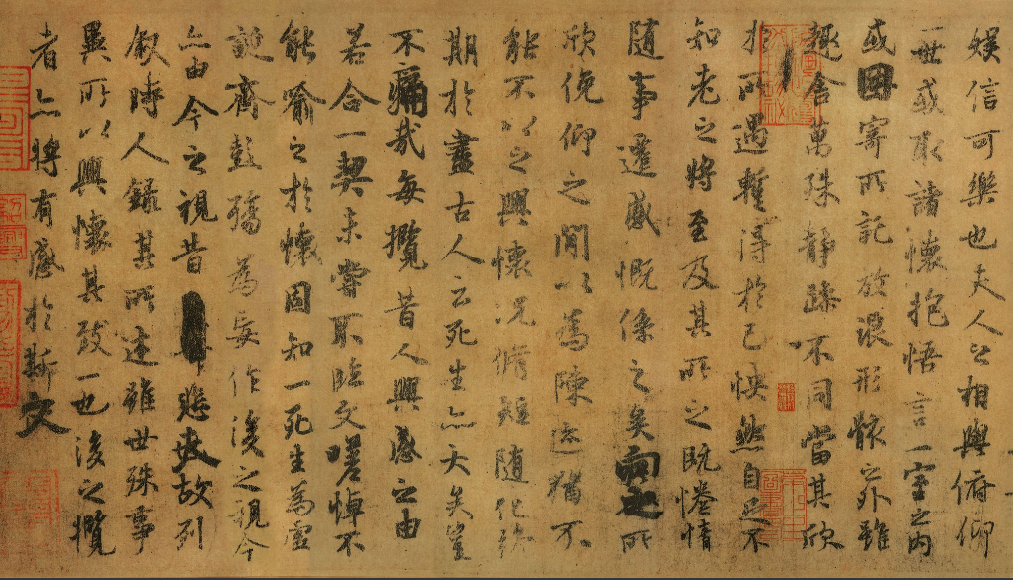 娛信可樂也夫人之相與俯仰
一世或取諸懷抱悟言一室之內
或因寄所託放浪形骸之外雖
趣舍萬殊靜躁不同當其欣
於所遇暫得於己怏然自足不
知老之將至及其所之既惓情
随事遷感慨係之矣向之所
欣俛仰之閒以為陳迹猶不
能不以之興懷況脩短随化終
期於盡古人云死生亦大矣豈
不痛哉每攬昔人興感之由
若合一契未嘗不臨文嗟悼不
能喻之於懷固知一死生為虛
誕齊彭殤為妄作後之視今
亦由今之視昔悲夫故列
叙時人錄其所述雖世殊事
異所以興懷其致一也後之攬
者亦將有感於斯文